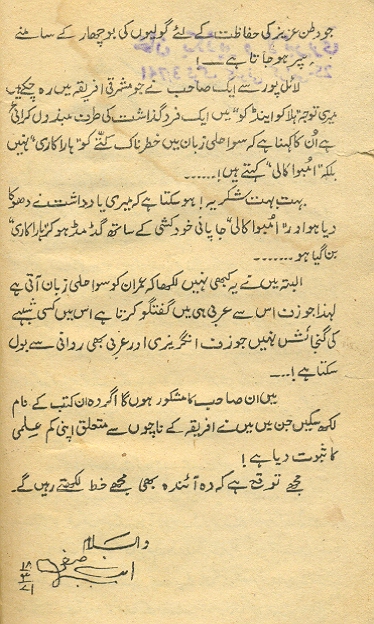 جو وطن عزیز کی حفاظت کے لئے گولیوں کی بوچھار کے سامنے
سپر ہو جاتا ہے ــــ!
لائل پور سے ایک صاحب نے جو مشرقی افریقہ میں رہ چکے ہیں
میری توجہ "ہلاکو اینڈ کو" میں ایک فرد گذاشت کی طرف مبذول کرائی
ہے اُن کا کہنا ہے کہ سواحلی زبان میں خطرناک کتّے کو "ہاراکاری" نہیں
بلکہ "امبوا کالی" کہتے ہیں!.......
بہت بہت شکریہ! ہو سکتا ہے کہ میری یادداشت نے دھوکا
دیا ہو اور "امبوا کالی" جاپانی خودکشی کے ساتھ گڈمڈ ہو کر "ہاراکاری"
بن گیا ہو.......
البتہ میں نے یہ کبھی نہیں لکھا کہ عمران کو سواحلی زبان آتی ہے
لہٰذا جوزف اس سے عربی ہی میں گفتگو کرتا ہے اس میں کسی شبہے
کی گنجائش نہیں جوزف انگریزی اور عربی بھی روانی سے بول
سکتا ہے!...
میں ان صاحب کا مشکور ہوں گا اگر وہ ان کتب کے نام
لکھ سکیں جن میں میں نے افریقہ کے ناچوں سے متعلق اپنی کم علمی
کا ثبوت دیا ہے!
مجھے توقع ہے کہ وہ آئندہ بھی مجھے خط لکھتے رہیں گے۔
والسلام
ابن صفی